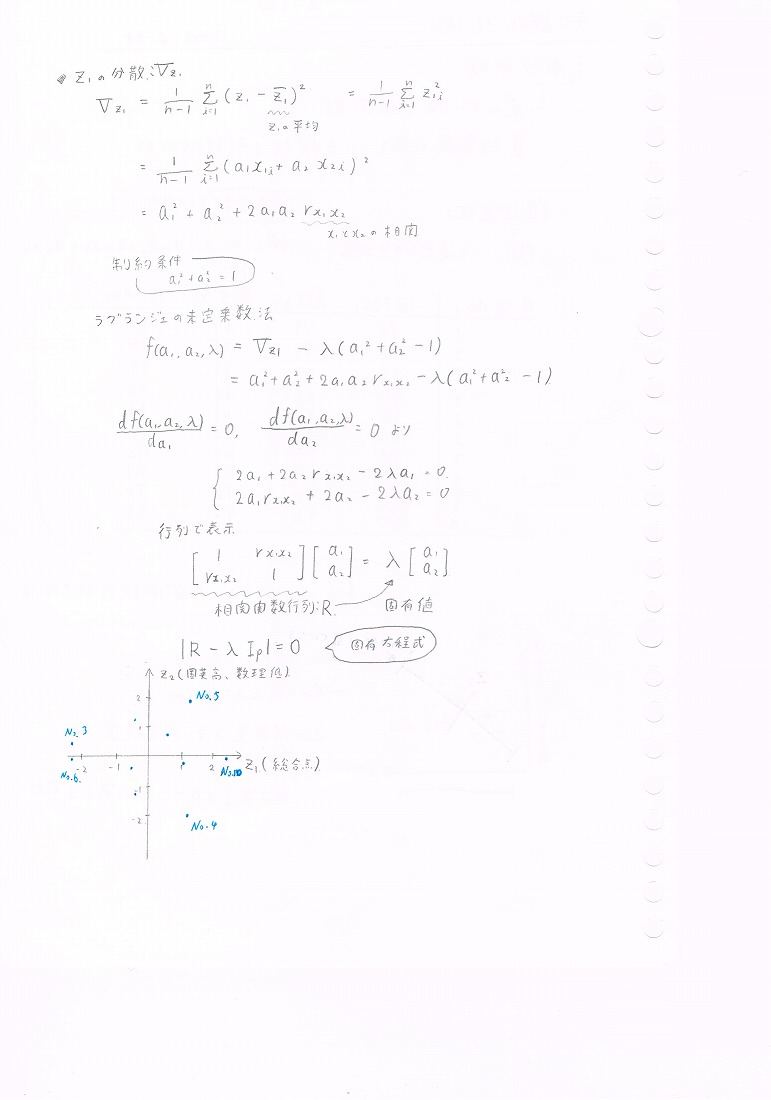 Z₁の分散:V_{Z₁}
V_{Z₁} = 1/(n-1) Σ_{i=1}^{n} (Z₁ - Z̄₁)² = 1/(n-1) Σ_{i=1}^{n} Z₁ᵢ²
Z₁の平均
= 1/(n-1) Σ_{i=1}^{n} (a₁x₁ᵢ + a₂x₂ᵢ)²
= a₁² + a₂² + 2a₁a₂ r_{x₁x₂}
x₁とx₂の相関
制約条件
a₁² + a₂² = 1
ラグランジェの未定乗数法
f(a₁, a₂, λ) = V_{Z₁} - λ(a₁² + a₂² - 1)
= a₁² + a₂² + 2a₁a₂ r_{x₁x₂} - λ(a₁² + a₂² - 1)
df(a₁, a₂, λ)/da₁ = 0, df(a₁, a₂, λ)/da₂ = 0 より
2a₁ + 2a₂ r_{x₁x₂} - 2λa₁ = 0
2a₁ r_{x₁x₂} + 2a₂ - 2λa₂ = 0
行列で表示
[1 r_{x₁x₂}] [a₁] = λ [a₁]
[r_{x₁x₂} 1] [a₂] [a₂]
相関関数行列:R 固有値
|R - λIp| = 0 固有方程式
Z₂(国英高、数理低)
2 No.5
No.3 1
-2 -1 1 2 Z₁(総合点)
No.6 No.10
-1
-2 No.4